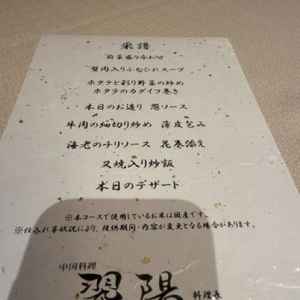 菜譜
前菜盛り合わせ
蟹肉入りふかひれスープ
ホタテと彩り野菜の炒め
ホタテのカダイフ巻き
本日のお造り 葱ソース
牛肉の細切り炒め 薄皮包み
海老のチリソース 花巻添え
叉焼入り炒飯
本日のデザート
※本コースで使用しているお米は国産です。
※仕込み等状況により、提供期間・内容が変更となる場合があります。
中国料理
翠陽
料理長